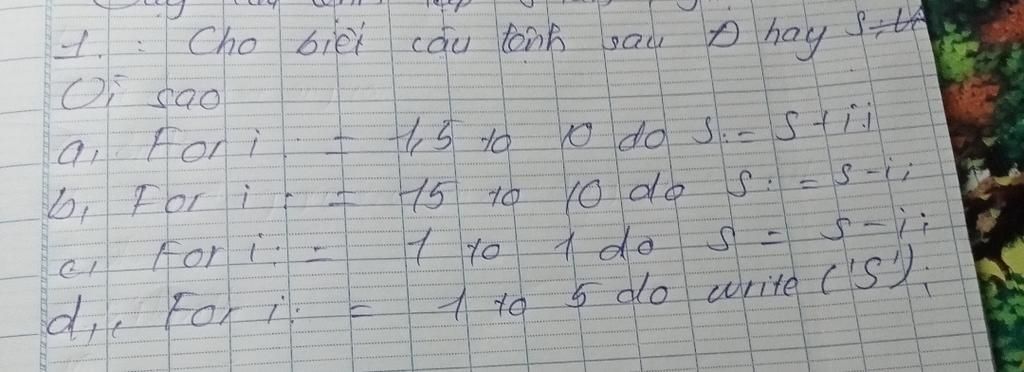 1. : Cho biết câu lệnh sau Đ hay S
Vì sao
a, For i := 1,5 to 10 do S := S + i;
b, For i := 15 to 10 do S := S - i;
c, For i := 1 to 1 do S = S - i;
d, For i := 1 to 5 do write ('S');